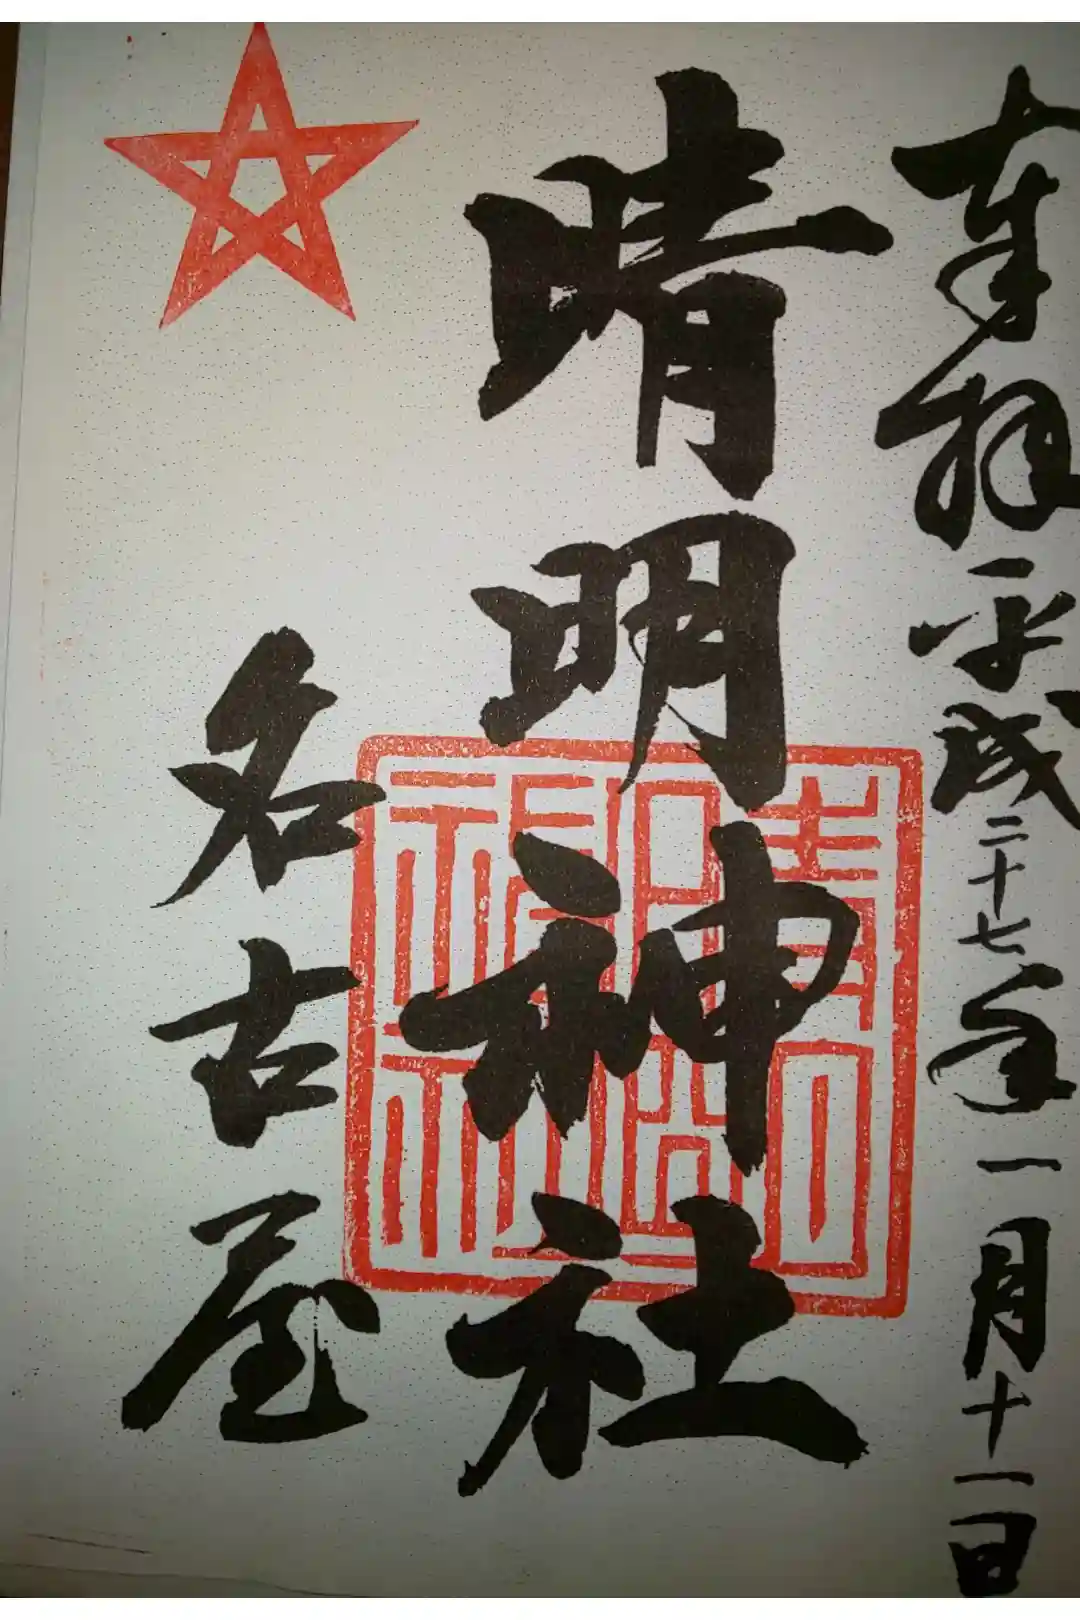 奉拝 平成二十七年一月十一日
晴明神社
名古屋